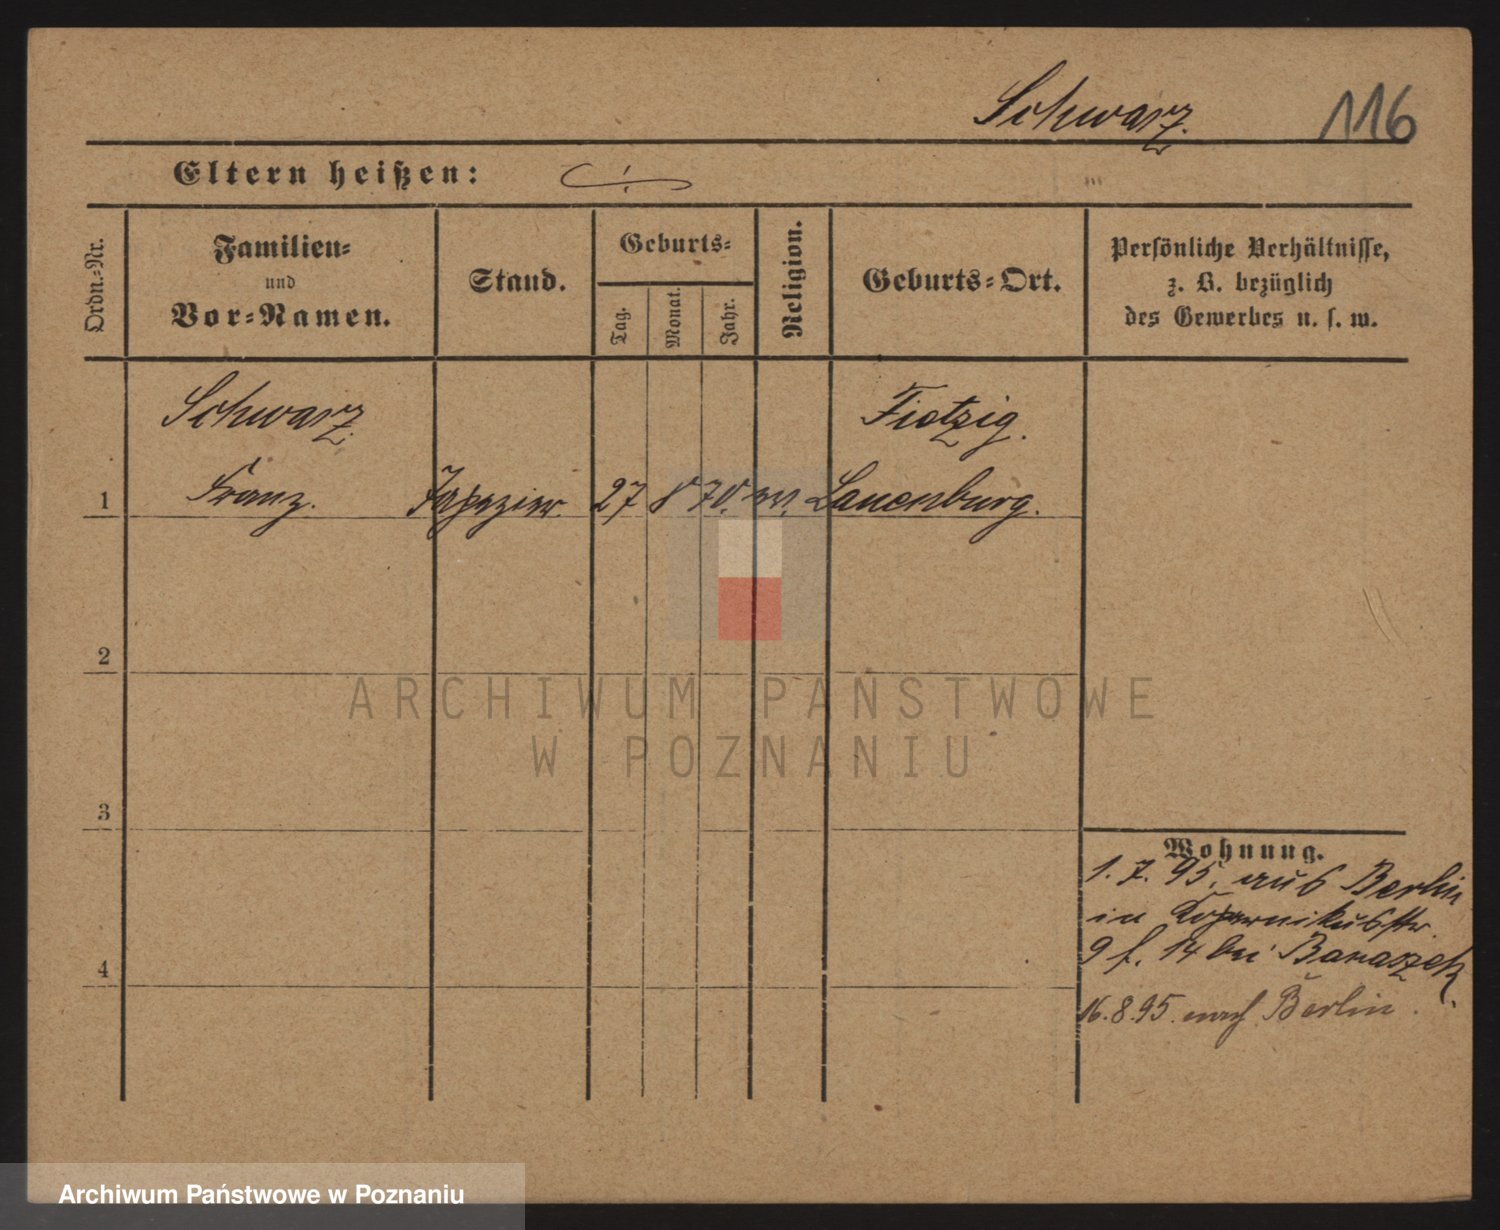 Schwarz. 116
Eltern heißen:
Ordn.-Nr.
Familien-
und
Vor-Namen.
Stand.
Geburts-
Tag.
Monat.
Jahr.
Religion.
Geburts-Ort.
Persönliche Verhältnisse,
z. B. bezüglich
des Gewerbes u. s. w.
Schwarz. Fietzig.
1 Franz. Tapezier. 27 8 70. ev. Lauenburg.
2
ARCHIWUM PAŃSTWOWE
W POZNANIU
3
Wohnung.
1. 7. 95. aus Berlin
in Kopernikusstr.
4
9 f. 14 bei Banaszek.
16. 8. 95. nach Berlin.
Archiwum Państwowe w Poznaniu